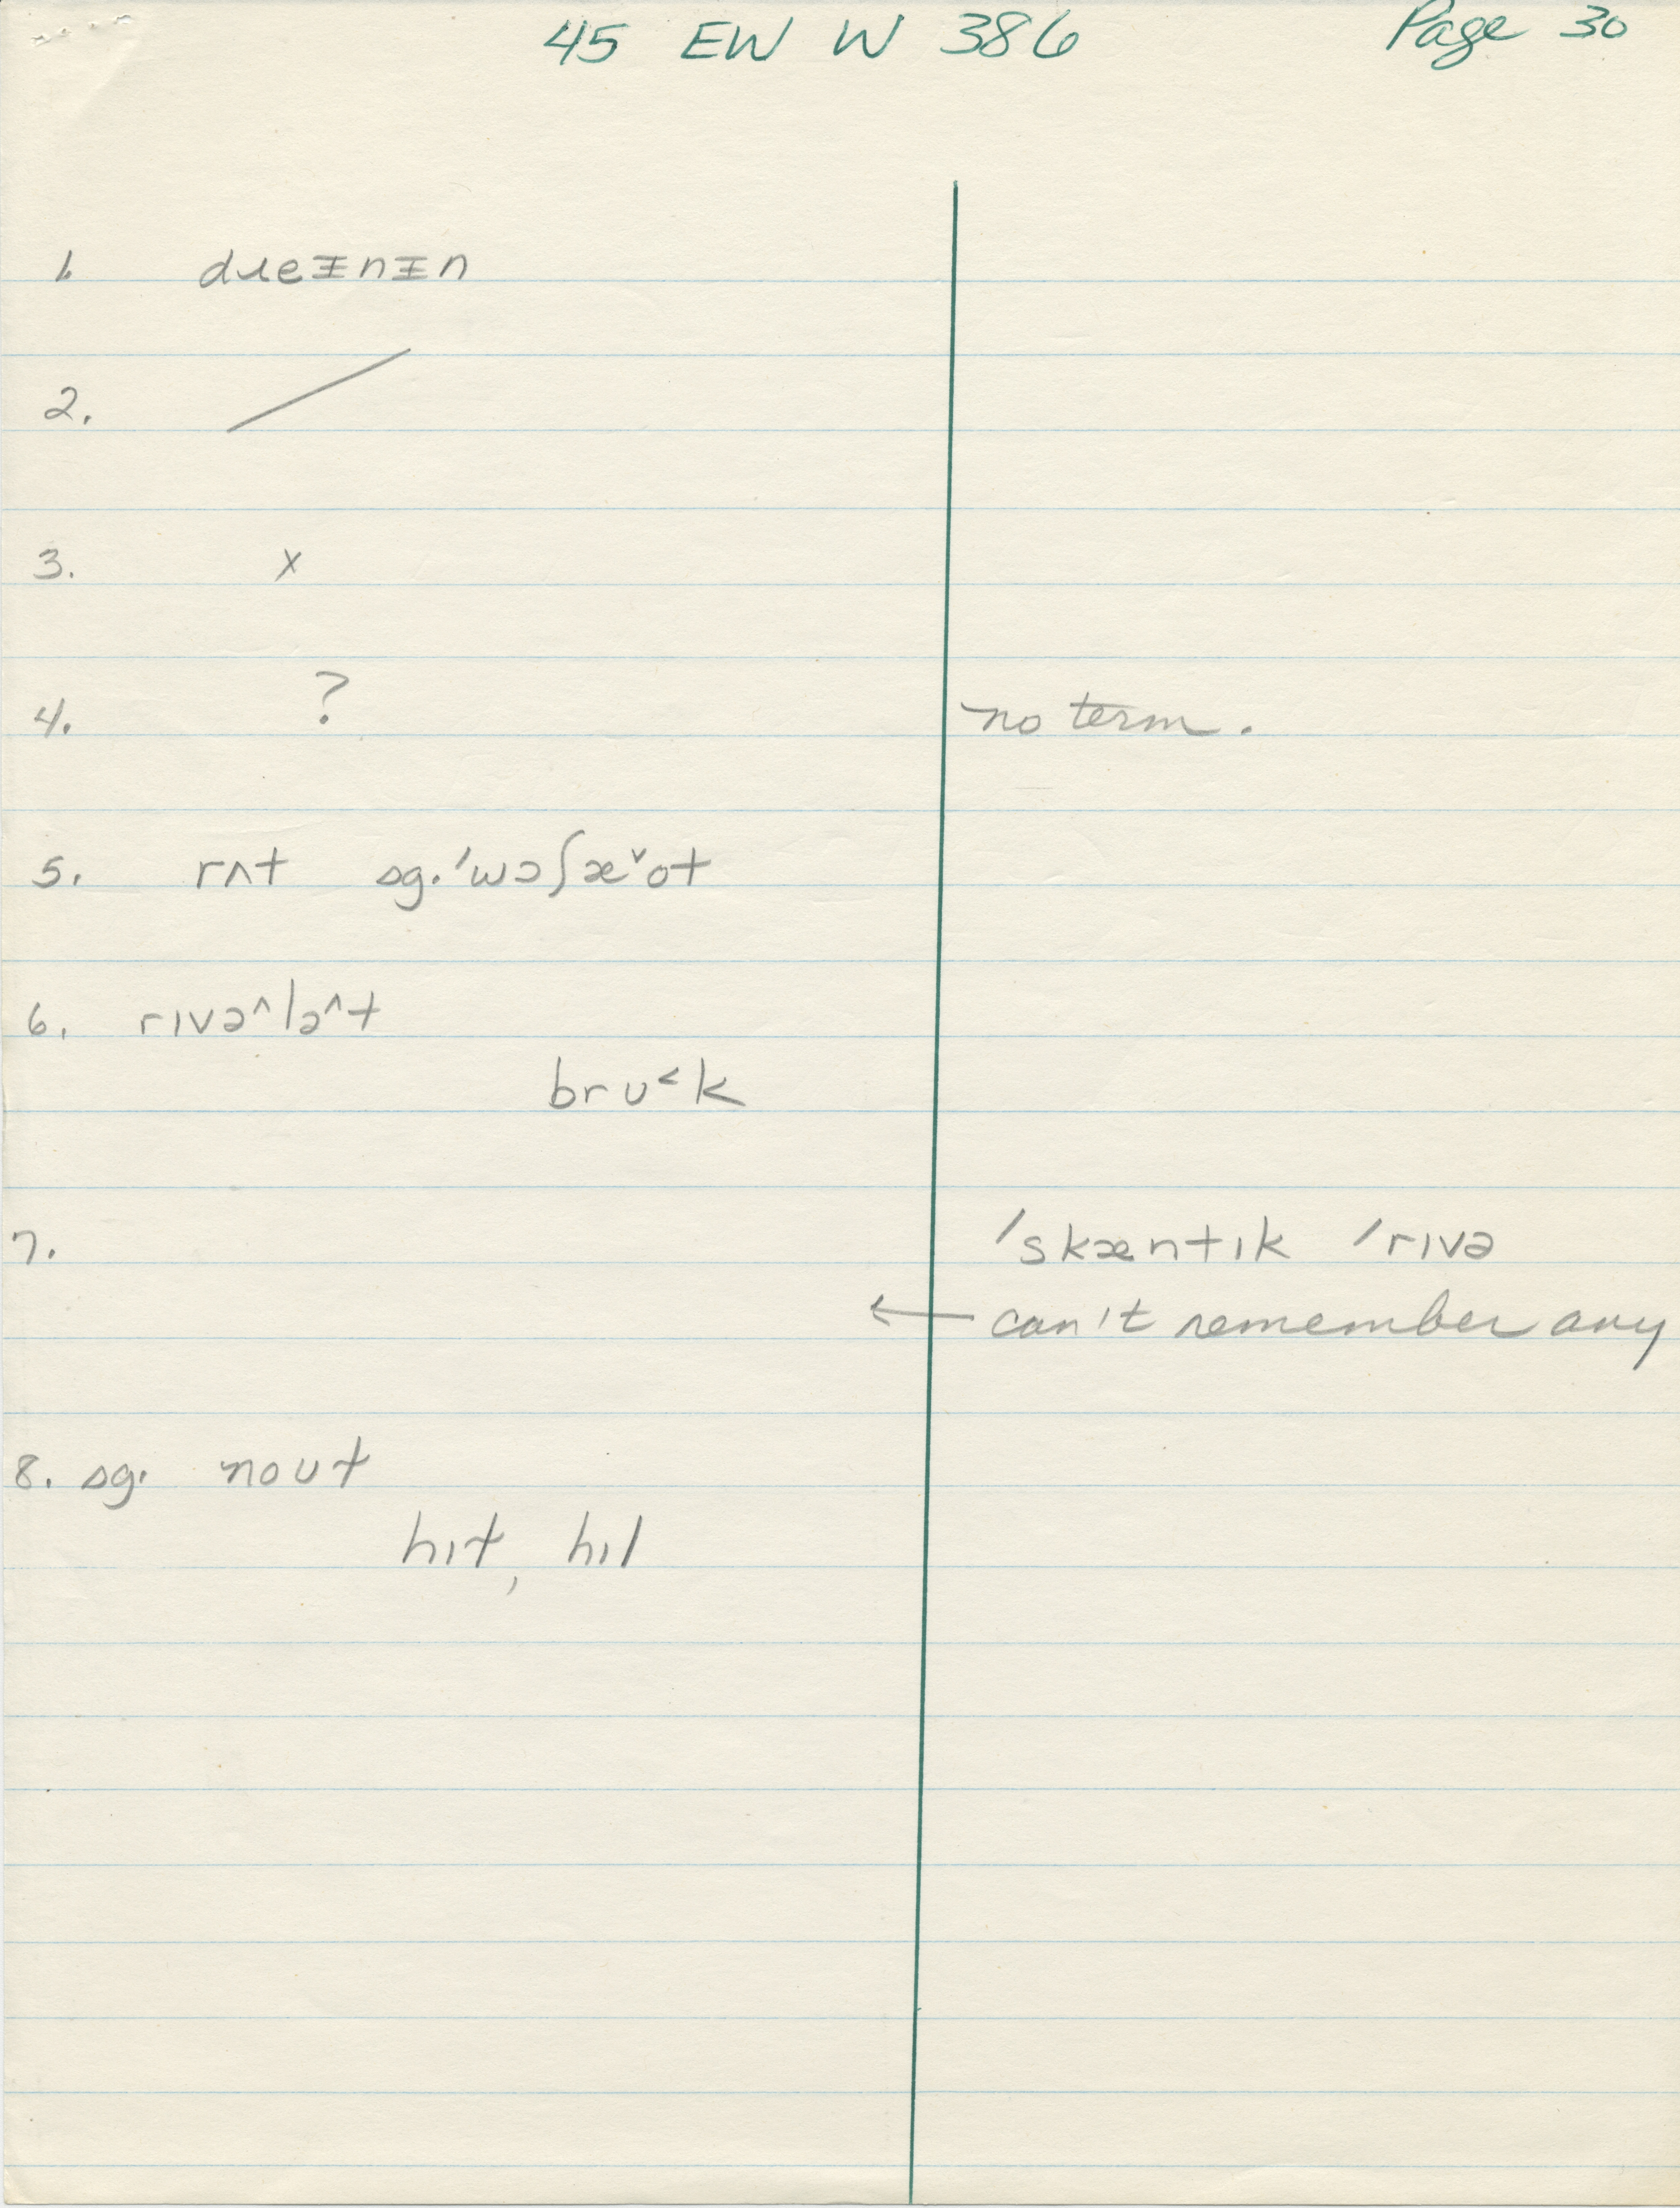 45 EW W 386 Page 30
1. dɹeᵻnᵻn
2. /
3. x
4. ? no term.
5. rʌt sg. ˈwɔʃæ˅ot
6. rɪvə^lə^t
brʊ˂k
7. ˈskæntɪk ˈrɪvə
← can't remember any
8. sg. noʊt
hɪt, hɪl